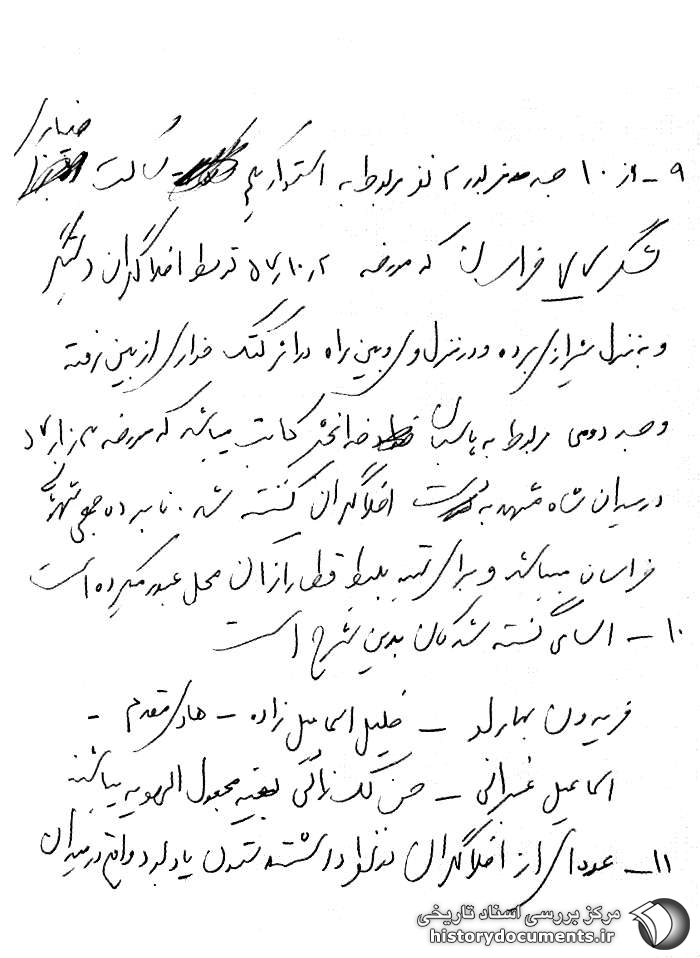 جنازه
۹ – از ۱۰ جسد مزبور ۲ نفر مربوط به استوار یکم
لشگر ۷۷ خراسان که مورخه ۵۷٫۱۰٫۲ توسط اخلالگران دستگیر
و به منزل شیرازی برده و در منزل وی و بین راه در اثر کتک خواری از بین رفته
و جسد دومی مربوط به پاسبان میباشد که مورخه
در میدان شاه مشهد به دست اخلالگران کشته شد. نامبرده جمعی شهربانی
خراسان میباشد و برای تهیه بلیط قطار از آن محل عبور میکرده است
۱۰ – اسامی کشته شدگان بدین شرح است
فریدون – خلیل اسماعیل زاده – هادی مقدم –
اسماعیل – حسن بقیه مجهول الهویه میباشند
۱۱ – عده‌ای از اخلالگران در نظر داشتند ستون یادبود واقع در میدان
مرکز بررسی اسناد تاریخی
historydocuments.ir